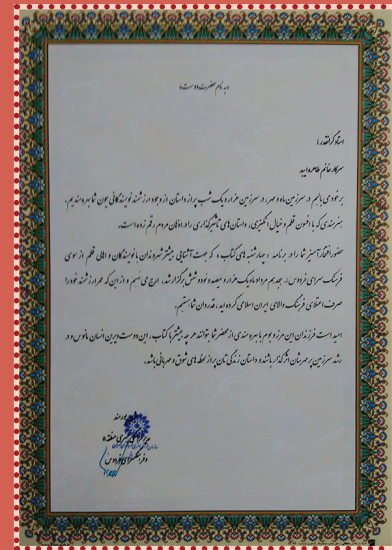 «به نام حضرت دوست»
استاد گرانقدر؛
سرکار خانم طاهره ایبد
بر خود می بالیم در سرزمین ماه و مهر، در سرزمین هزار و یک شب پر از داستان از وجود ارزشمند نویسندگانی چون شما بهره مندیم،
هنرمندی که با افسون قلم و خیال انگیزی، داستان های تاثیرگذاری را در اذهان مردم رقم زده است.
حضور افتخارآمیز شما را در برنامه «چهارشنبه های کتاب» که جهت آشنایی بیشتر شهروندان با نویسندگان و اهالی قلم از سوی
فرهنگ سرای فردوس، هجدهم مرداد ماه یک هزار و سیصد و نود و شش برگزار شد، ارج می نهیم و از این که عمر ارزشمند خود را
صرف اعتلای فرهنگ والای ایران اسلامی کرده اید، قدردان شما هستیم.
امید است فرزندان این مرز و بوم با بهره مندی از محضر شما بتوانند هر چه بیشتر با کتاب، این دوست دیرین انسان مانوس و در
رشد سرزمین پر مهرشان اثرگذار باشند و داستان زندگی تان پر از لحظه های شوق و مهربانی باشد.
مدیر فرهنگی هنری منطقه ۵
و فرهنگسرای فردوس